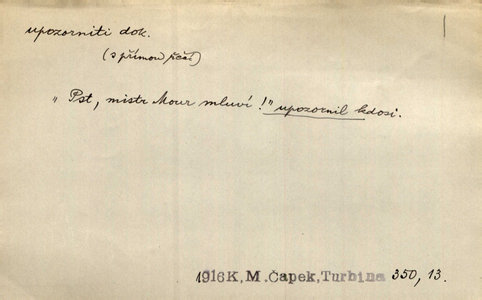 upozorniti dok.
(s přímou řečí)
„Pst, mistr Mour mluví!" upozornil kdosi.
1916K, M. Čapek, Turbina 350, 13.